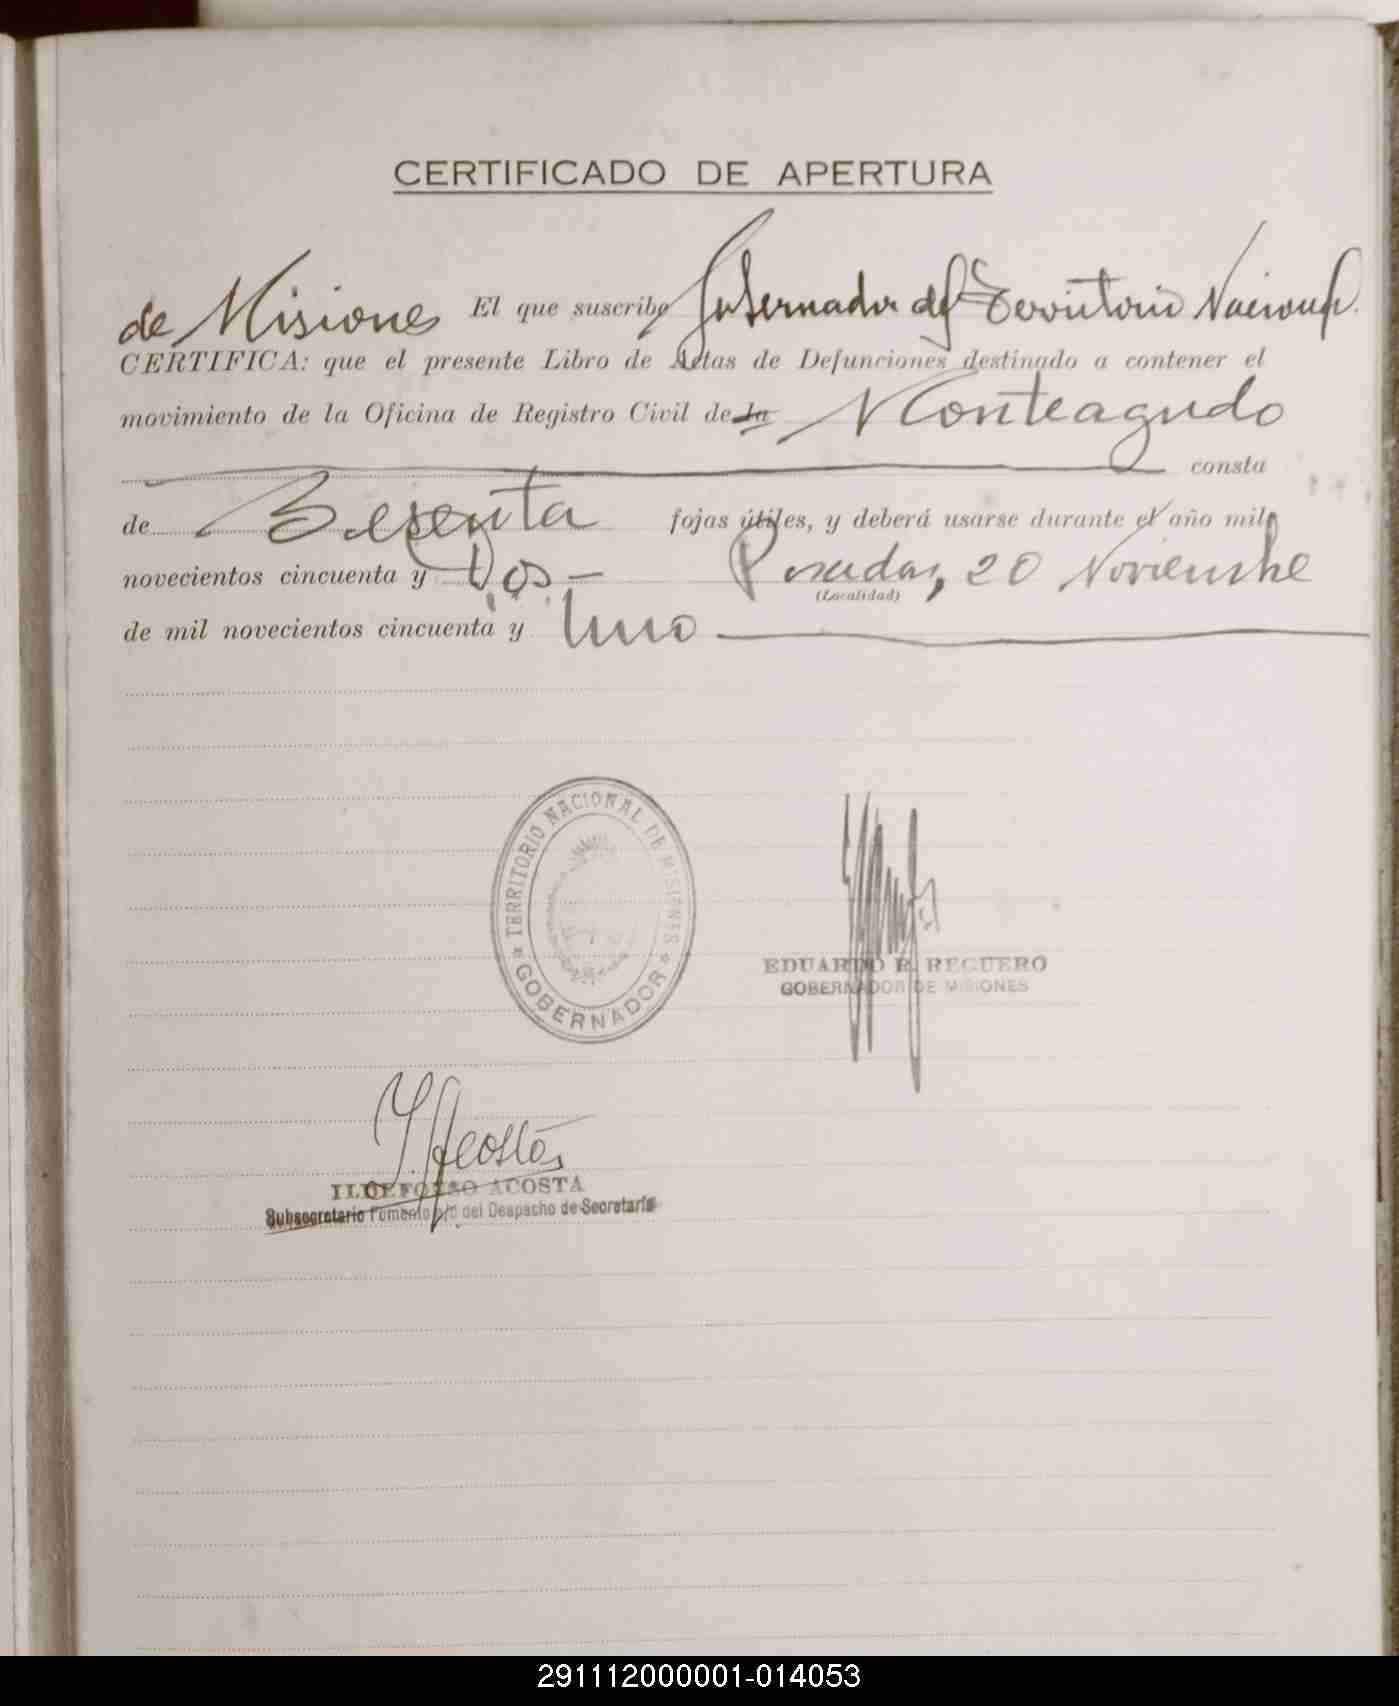 CERTIFICADO DE APERTURA
El que suscribe Gobernador del Territorio Nacional
de Misiones
CERTIFICA: que el presente Libro de Actas de Defunciones destinado a contener el
movimiento de la Oficina de Registro Civil de la Monteagudo
consta
de Sesenta fojas útiles, y deberá usarse durante el año mil
novecientos cincuenta y Dos.— Posadas, 20 Noviembre
(Localidad)
de mil novecientos cincuenta y Uno
TERRITORIO NACIONAL DE MISIONES
GOBERNADOR
EDUARDO R. REGUERO
GOBERNADOR DE MISIONES
I. Acosta
ILDEFONSO ACOSTA
Subsecretario Fomento a/c del Despacho de Secretaría
291112000001-014053